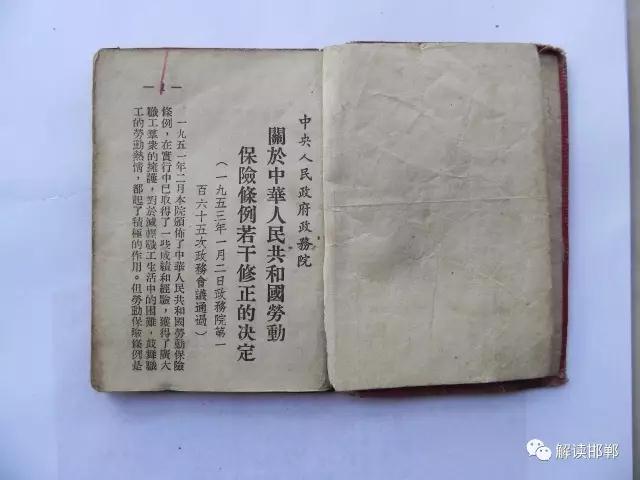 中央人民政府政務院
關於中華人民共和國勞動
保險條例若干修正的决定
(一九五三年一月二日政務院第一
百六十五次政務會議通過)
一九五一年二月本院頒佈了中華人民共和國勞動保險
條例，在實行中已取得了一些成績和經驗，獲得了廣大
職工羣衆的擁護，對於減輕職工生活中的困難，鼓舞職
工的勞動熱情，都起了積極的作用。但勞動保險條例是
— 1 —
解读邯郸